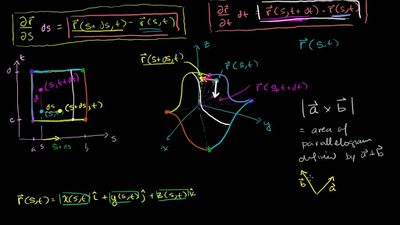 ∂r⃗/∂s ds = r⃗(s+ds,t) - r⃗(s,t)
∂r⃗/∂t dt = r⃗(s,t+dt) - r⃗(s,t)
r⃗(s,t)
t
d
(s,t+dt)
ds
(s+ds,t)
(s,t)
c
a s b s
s+ds
z
r⃗(s+ds,t)
r⃗(s,t)
r⃗(s,t+dt)
x
y
|a⃗ × b⃗|
= area of
parallelogram
defined by a⃗ + b⃗
b⃗ a⃗
r⃗(s,t) = x(s,t)î + y(s,t)ĵ + z(s,t)k̂